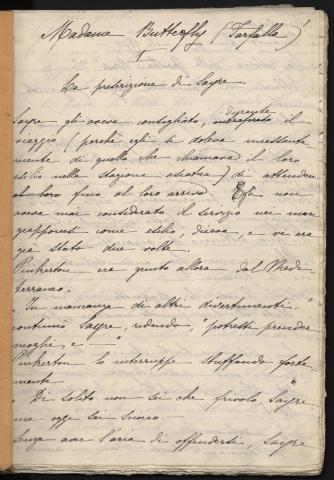 Madame Butterfly (Farfalla)
I
La predizione di Sayre.
Sayre gli aveva consigliato, durante il
viaggio (perchè egli si doleva incessante
mente di quello che chiamava il loro
esilio nella stazione asiatica) di attendere
al loro fino al loro arrivo. Egli non
aveva mai considerato il servizio nei mari
giapponesi come esilio, diceva, e vi era
già stato due volte.
Pinkerton era giunto allora dal Medi
terraneo.
"In mancanza di altri divertimenti"
continuò Sayre, ridendo, "potresti prender
moglie, e —"
Pinkerton lo interruppe sbuffando forte
mente
"Di solito non sei che frivolo, Sayre
ma oggi sei sciocco.
Senza aver l'aria di offendersi, Sayre